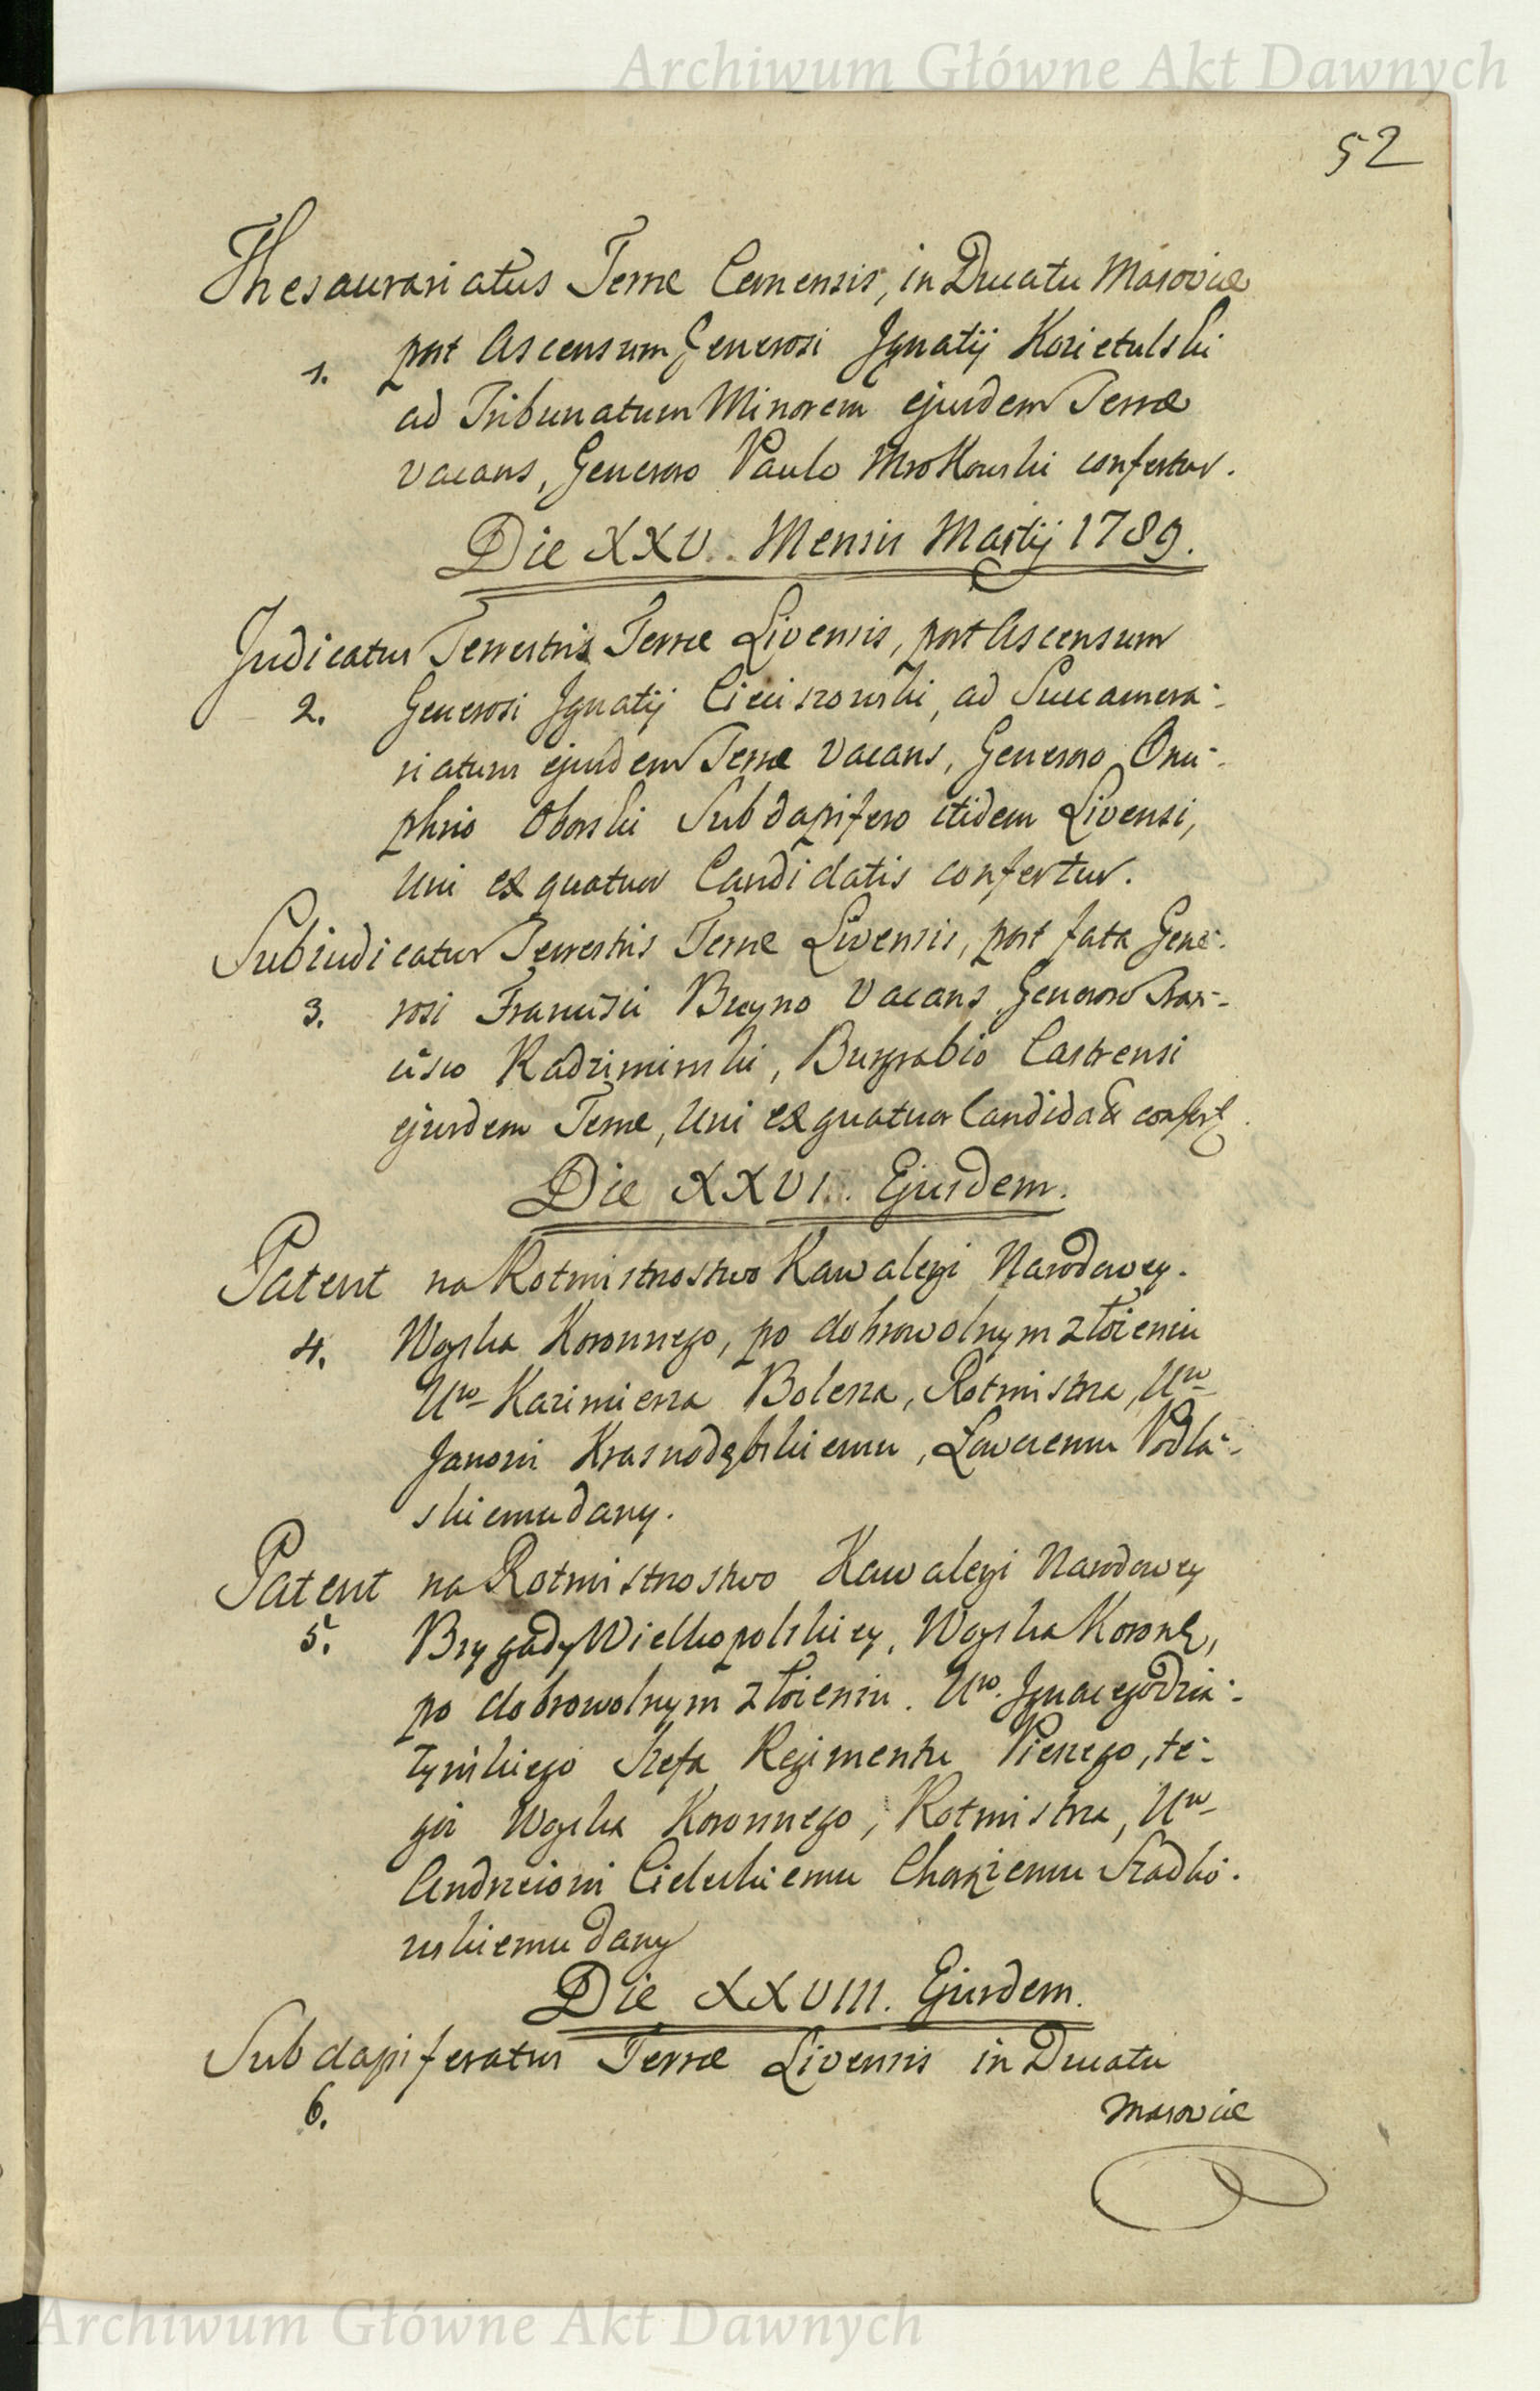 Archiwum Główne Akt Dawnych
52
Thesaurariatus Terræ Cernensis, in Ducatu Masoviæ
1. post Ascensum Generosi Ignatij Kozietulski
ad Tribunatum Minorem ejusdem Terræ
vacans, Generoso Paulo Mrokowski confertur.
Die XXV. Mensis Martij 1789.
Judicatus Terrestris Terræ Livensis, post Ascensum
2. Generosi Ignatij Cieciszowski, ad Succamera-
riatum ejusdem Terræ vacans, Generoso Onu-
phrio Oborski Subdapifero itidem Livensi,
Uni ex quatuor Candidatis confertur.
Subiudicatus Terrestris Terræ Livensis, post fata Gene-
3. rosi Francisci Buyno vacans Generoso Fran-
cisco Radziminski, Burgrabio Castrensi
ejusdem Terræ, Uni ex quatuor Candidatis confert
Die XXVI. Ejusdem.
Patent na Rotmistrzostwo Kawaleryi Narodowey.
4. Woyska Koronnego, po dobrowolnym złożeniu
Uro Kazimierza Bolesza, Rotmistrza, Uro
Janowi Krasnodębskiemu, Łowczemu Podla-
skiemu dany.
Patent na Rotmistrzostwo Kawaleryi Narodowey
5. Brygady Wielkopolskiey, Woyska Koronn,
po dobrowolnym złożeniu. Uro. Ignacego Dzia-
łyńskiego Szefa Regimentu Pieszego, te-
goż Woyska Koronnego, Rotmistrza, Uro
Andrzeiowi Cieleckiemu Chorążemu Szadko-
wskiemu dany
Die XXVIII. Ejusdem.
Subdapiferatus Terræ Livensis in Ducatu
6. Masoviæ
Archiwum Główne Akt Dawnych